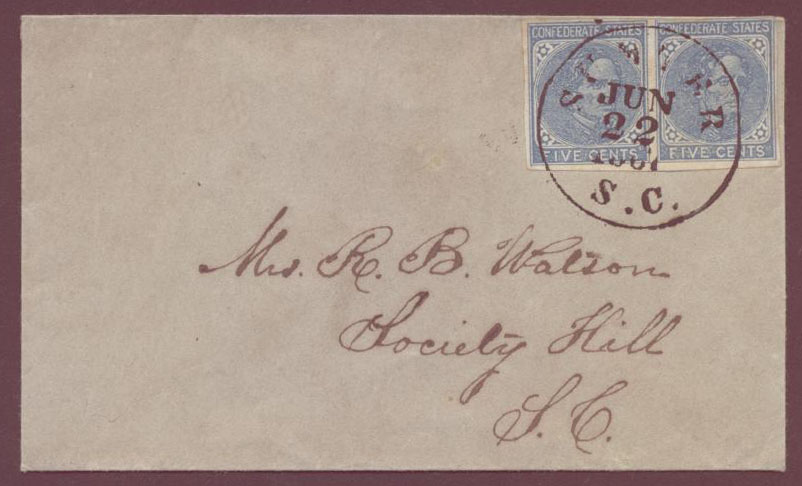 CONFEDERATE STATES CONFEDERATE STATES
SUMTER
JUN
22
S.C.
FIVE CENTS FIVE CENTS
Mrs. R. B. Watson
Society Hill
S.C.